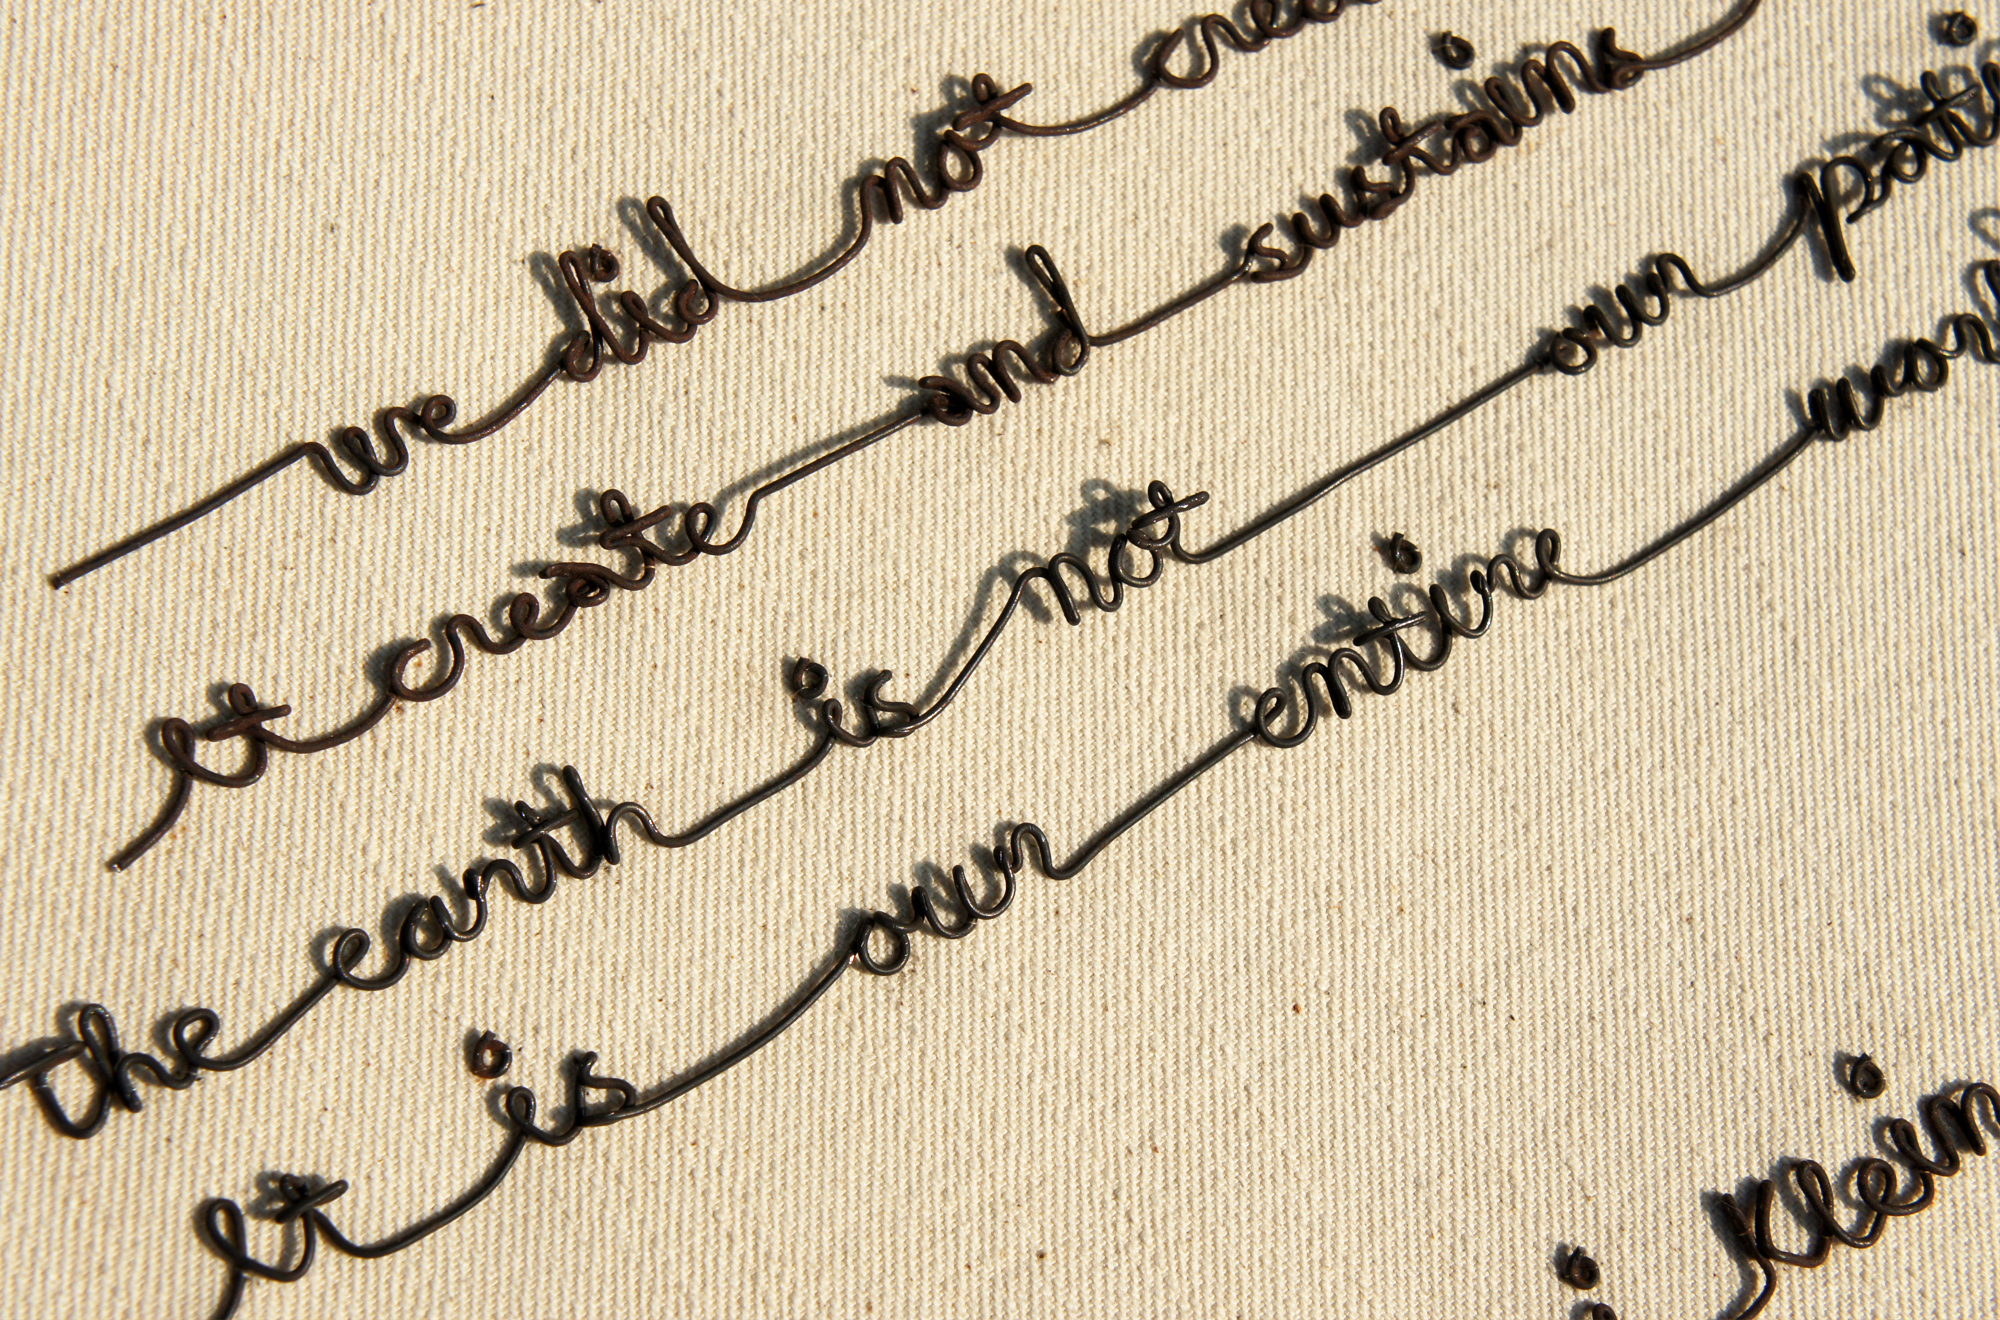 we did not crea
It create and sustains
The earth is not our pati
It is our entire worl
Klein